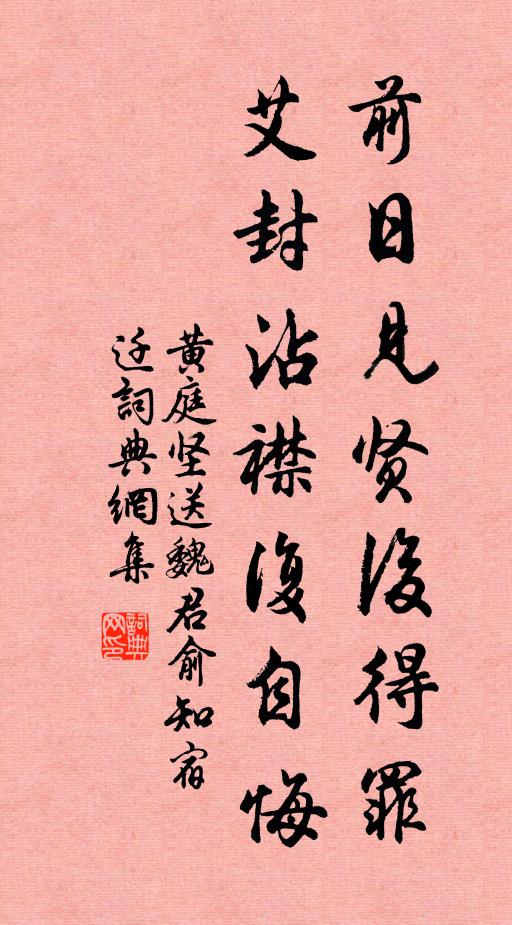 前日见贤後得罪
艾封沾襟復自悔
黄庭坚送魏君俞知宿
迁詞典網集
詞典网印